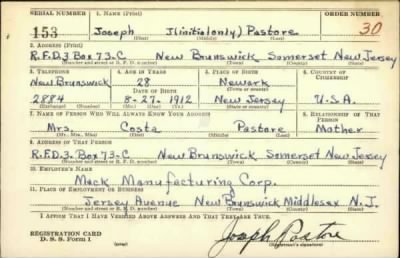 SERIAL NUMBER 1. NAME (Print) ORDER NUMBER
153 Joseph I(initial only) Pastore 30
(First) (Middle) (Last)
2. ADDRESS (Print)
R.F.D.3 Box 73-C New Brunswick Somerset New Jersey
(Number and street or R. F. D. number) (Town) (County) (State)
3. TELEPHONE 4. AGE IN YEARS 5. PLACE OF BIRTH 6. COUNTRY OF CITIZENSHIP
New Brunswick 28 Newark
DATE OF BIRTH (Town or county)
2884 8-27-1912 New Jersey U.S.A.
(Exchange) (Number) (Mo.) (Day) (Yr.) (State or country)
7. NAME OF PERSON WHO WILL ALWAYS KNOW YOUR ADDRESS 8. RELATIONSHIP OF THAT PERSON
Mrs. Costa Pastore Mother
(Mr., Mrs., Miss) (First) (Middle) (Last)
9. ADDRESS OF THAT PERSON
R.F.D.3. Box 73-C New Brunswick Somerset New Jersey
(Number and street or R. F. D. number) (Town) (County) (State)
10. EMPLOYER'S NAME
Mack Manufacturing Corp.
11. PLACE OF EMPLOYMENT OR BUSINESS
Jersey Avenue New Brunswick Middlesex N.J.
(Number and street or R. F. D. number) (Town) (County) (State)
I AFFIRM THAT I HAVE VERIFIED ABOVE ANSWERS AND THAT THEY ARE TRUE.
REGISTRATION CARD
D. S. S. Form 1 Joseph Pastore
(over)